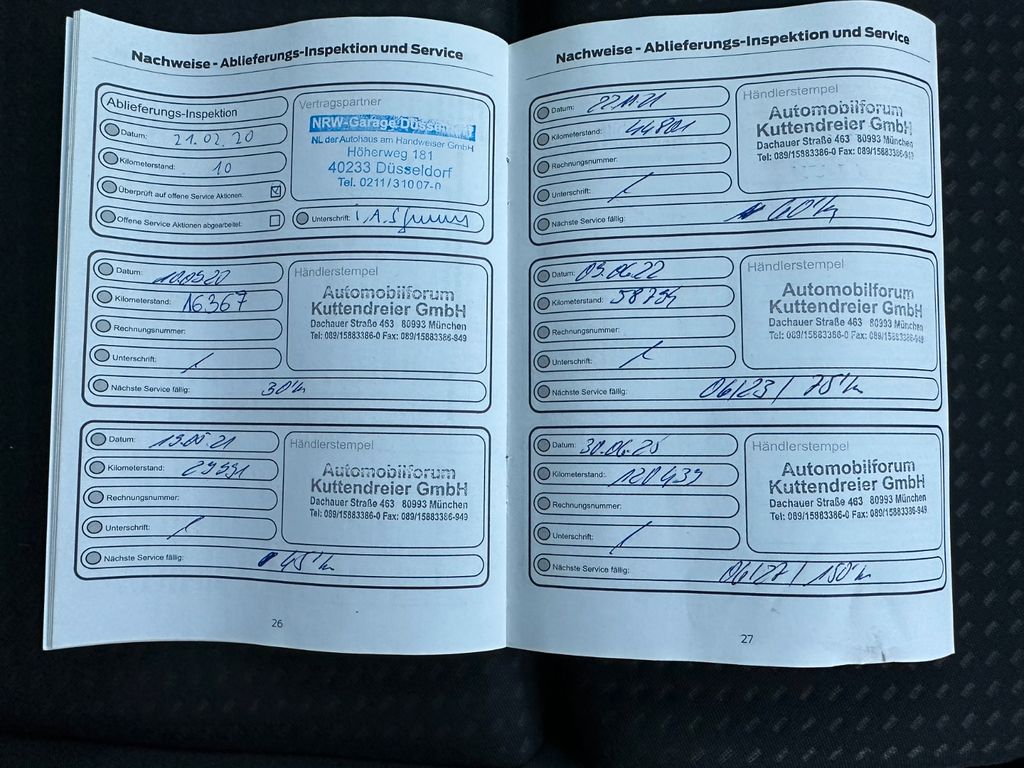 Nachweise - Ablieferungs-Inspektion und Service
Ablieferungs-Inspektion
Datum: 21.02.20
Kilometerstand: 10
Überprüft auf offene Service Aktionen:
Offene Service Aktionen abgearbeitet:
Vertragspartner
NRW-Garage Düsseldorf
NL der Autohaus am Handweiser GmbH
Höherweg 181
40233 Düsseldorf
Tel. 0211/31007-0
Unterschrift: i.A.
Datum: 10.09.20
Kilometerstand: 16.367
Rechnungsnummer:
Unterschrift:
Nächste Service fällig: 30'km
Händlerstempel
Automobilforum
Kuttendreier GmbH
Dachauer Straße 463 80993 München
Tel: 089/15883386-0 Fax: 089/15883386-949
Datum: 19.05.21
Kilometerstand: 29591
Rechnungsnummer:
Unterschrift:
Nächste Service fällig: 45'km
Händlerstempel
Automobilforum
Kuttendreier GmbH
Dachauer Straße 463 80993 München
Tel: 089/15883386-0 Fax: 089/15883386-949
26
Nachweise - Ablieferungs-Inspektion und Service
Datum: 22.11.21
Kilometerstand: 44801
Rechnungsnummer:
Unterschrift:
Nächste Service fällig: 60'km
Händlerstempel
Automobilforum
Kuttendreier GmbH
Dachauer Straße 463 80993 München
Tel: 089/15883386-0 Fax: 089/15883386-949
Datum: 03.06.22
Kilometerstand: 58794
Rechnungsnummer:
Unterschrift:
Nächste Service fällig: 06/23 / 75'km
Händlerstempel
Automobilforum
Kuttendreier GmbH
Dachauer Straße 463 80993 München
Tel: 089/15883386-0 Fax: 089/15883386-949
Datum: 30.06.25
Kilometerstand: 120439
Rechnungsnummer:
Unterschrift:
Nächste Service fällig: 06/27 / 150'km
Händlerstempel
Automobilforum
Kuttendreier GmbH
Dachauer Straße 463 80993 München
Tel: 089/15883386-0 Fax: 089/15883386-949
27